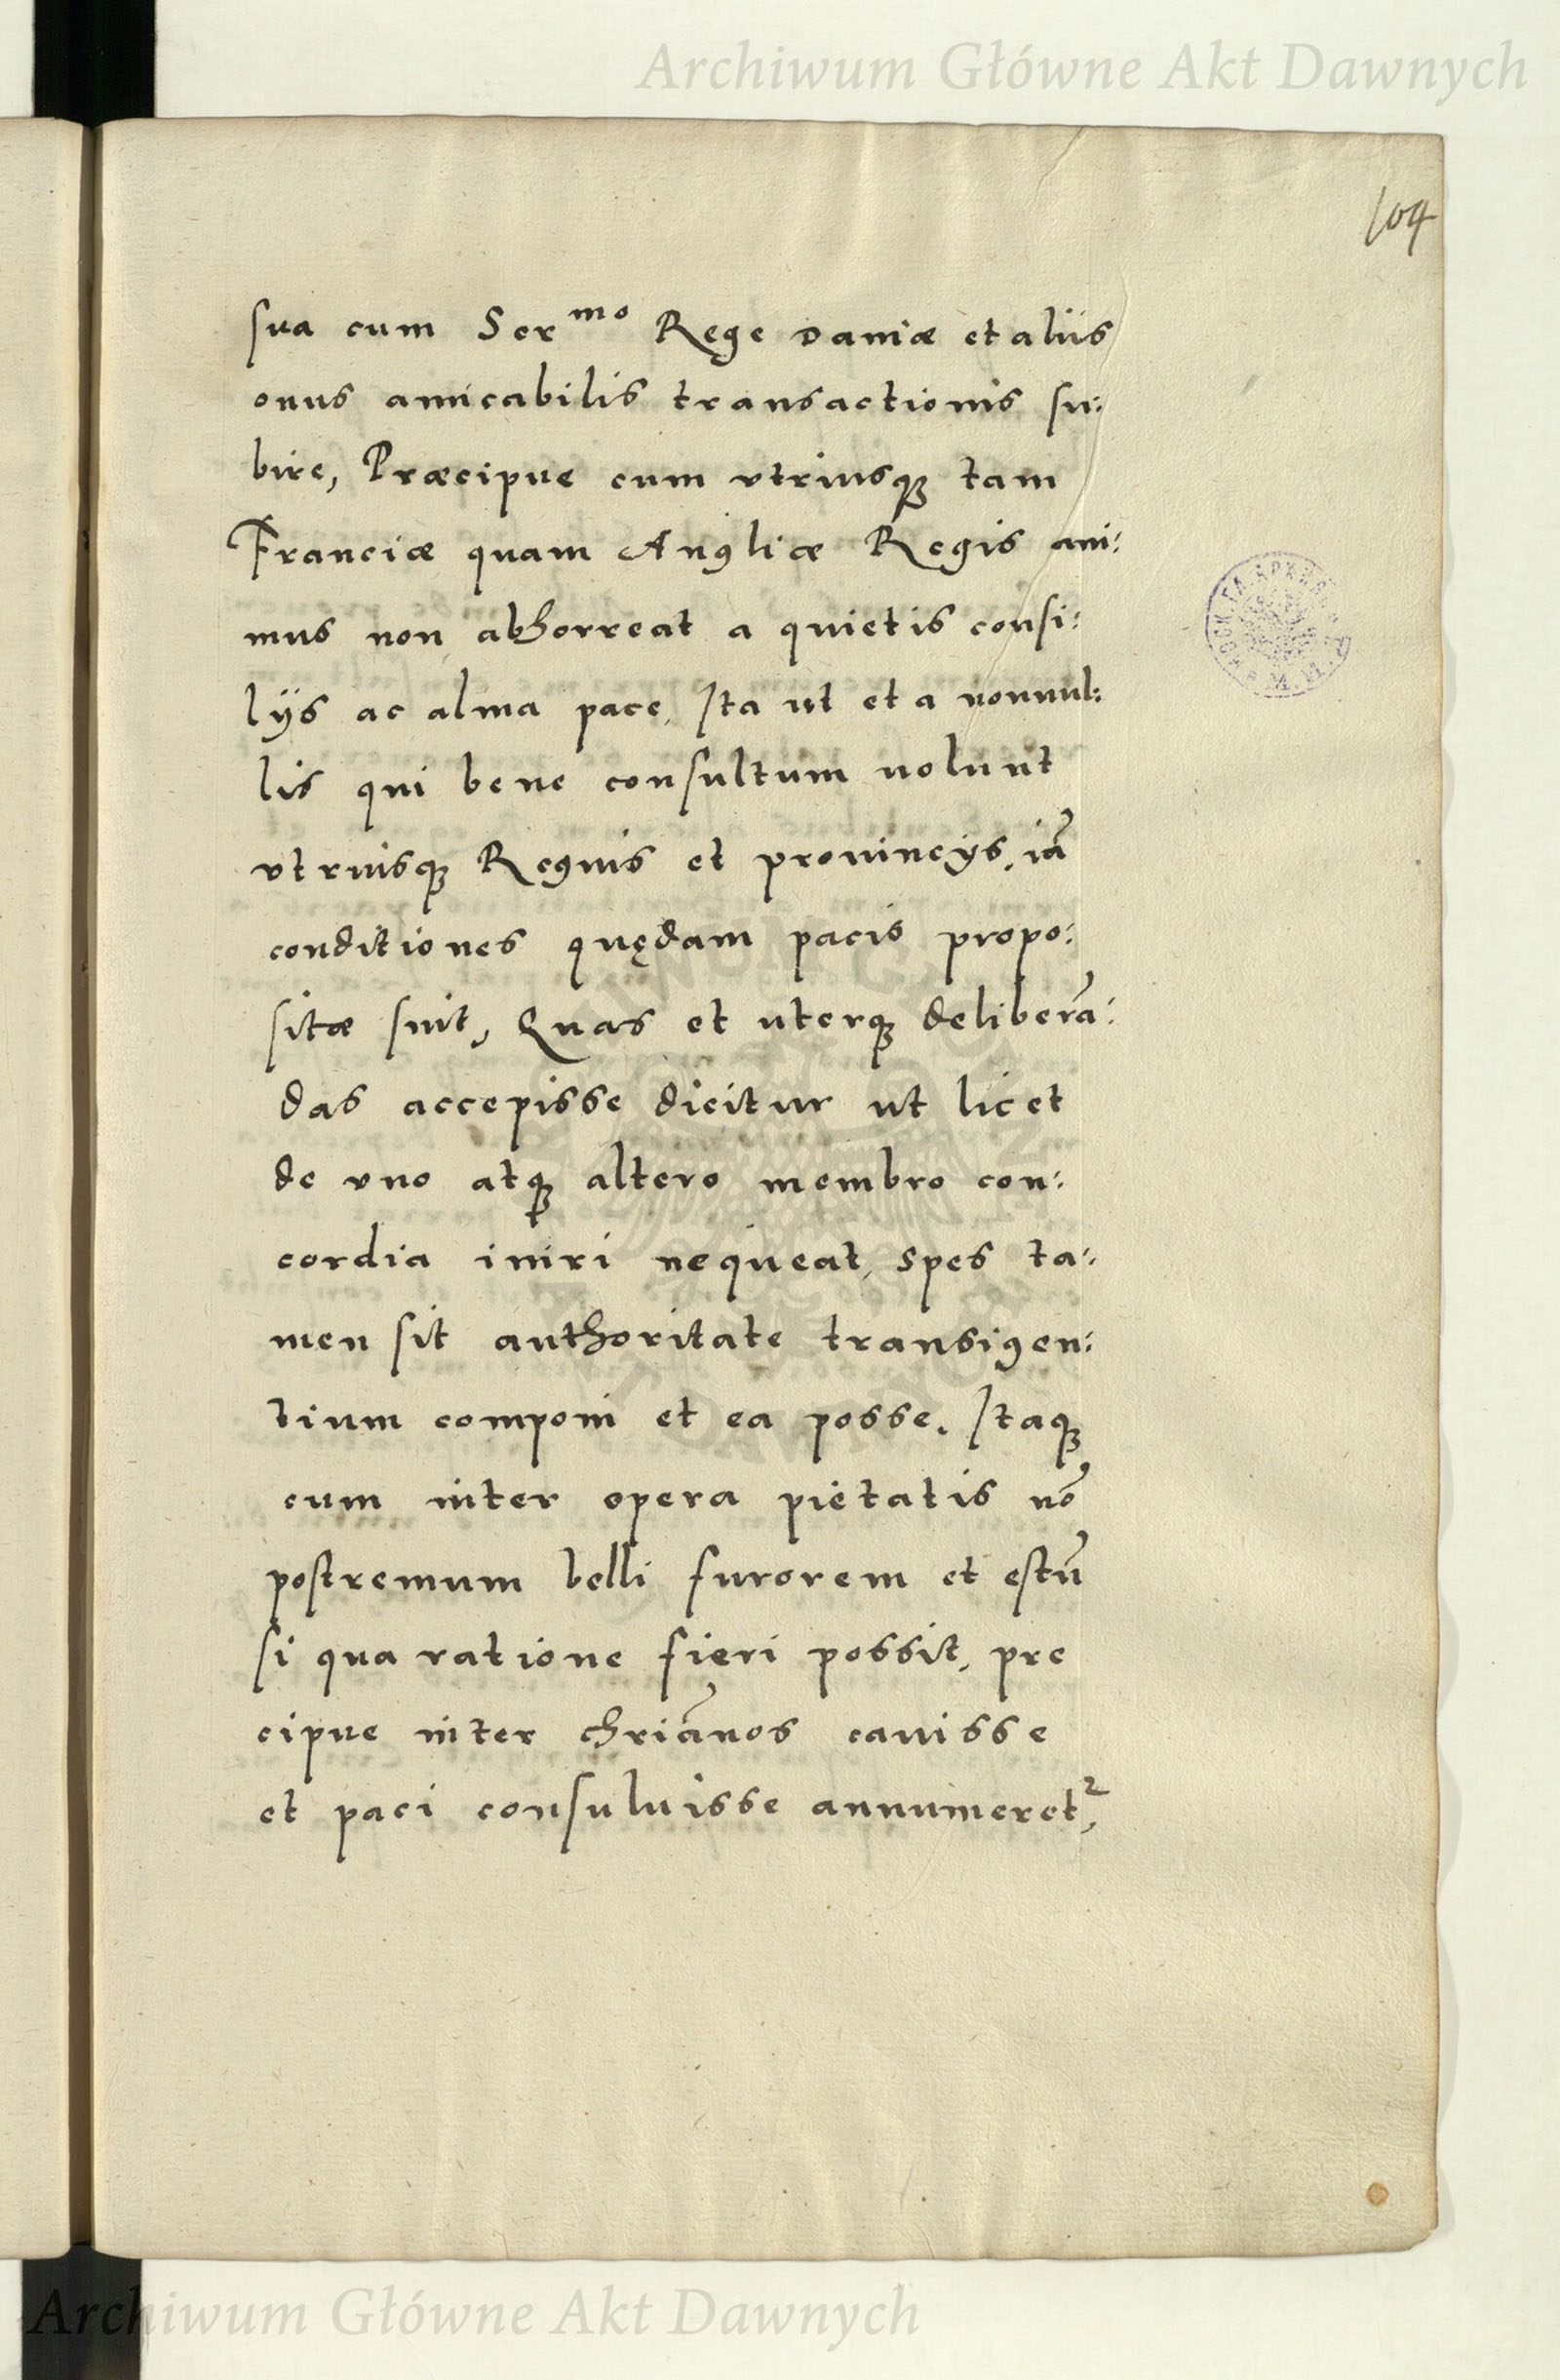 Archiwum Główne Akt Dawnych
104
sua cum Ser^mo Rege Daniæ et aliis
onus amicabilis transactionis su:
bire, Præcipue cum vtriusqꝫ tam
Franciæ quam Angliæ Regis ani:
mus non abhorreat a quietis consi:
lijs ac alma pace, Ita ut et a nonnul:
lis qui bene consultum uolunt
vtriusqꝫ Regnis et prouincijs, iā
conditiones quędam pacis propo:
sitæ sint, Quas et uterqꝫ deliberā:
das accepisse dicitur ut licet
de vno atqꝫ altero membro con:
cordia iniri nequeat, spes ta:
men sit authoritate transigen:
tium componi et ea posse. Itaqꝫ
cum inter opera pietatis nō
postremum belli furorem et estū
si qua ratione fieri possit, pre
cipue inter chriānos cauisse
et paci consuluisse annumeret^r,
Archiwum Główne Akt Dawnych